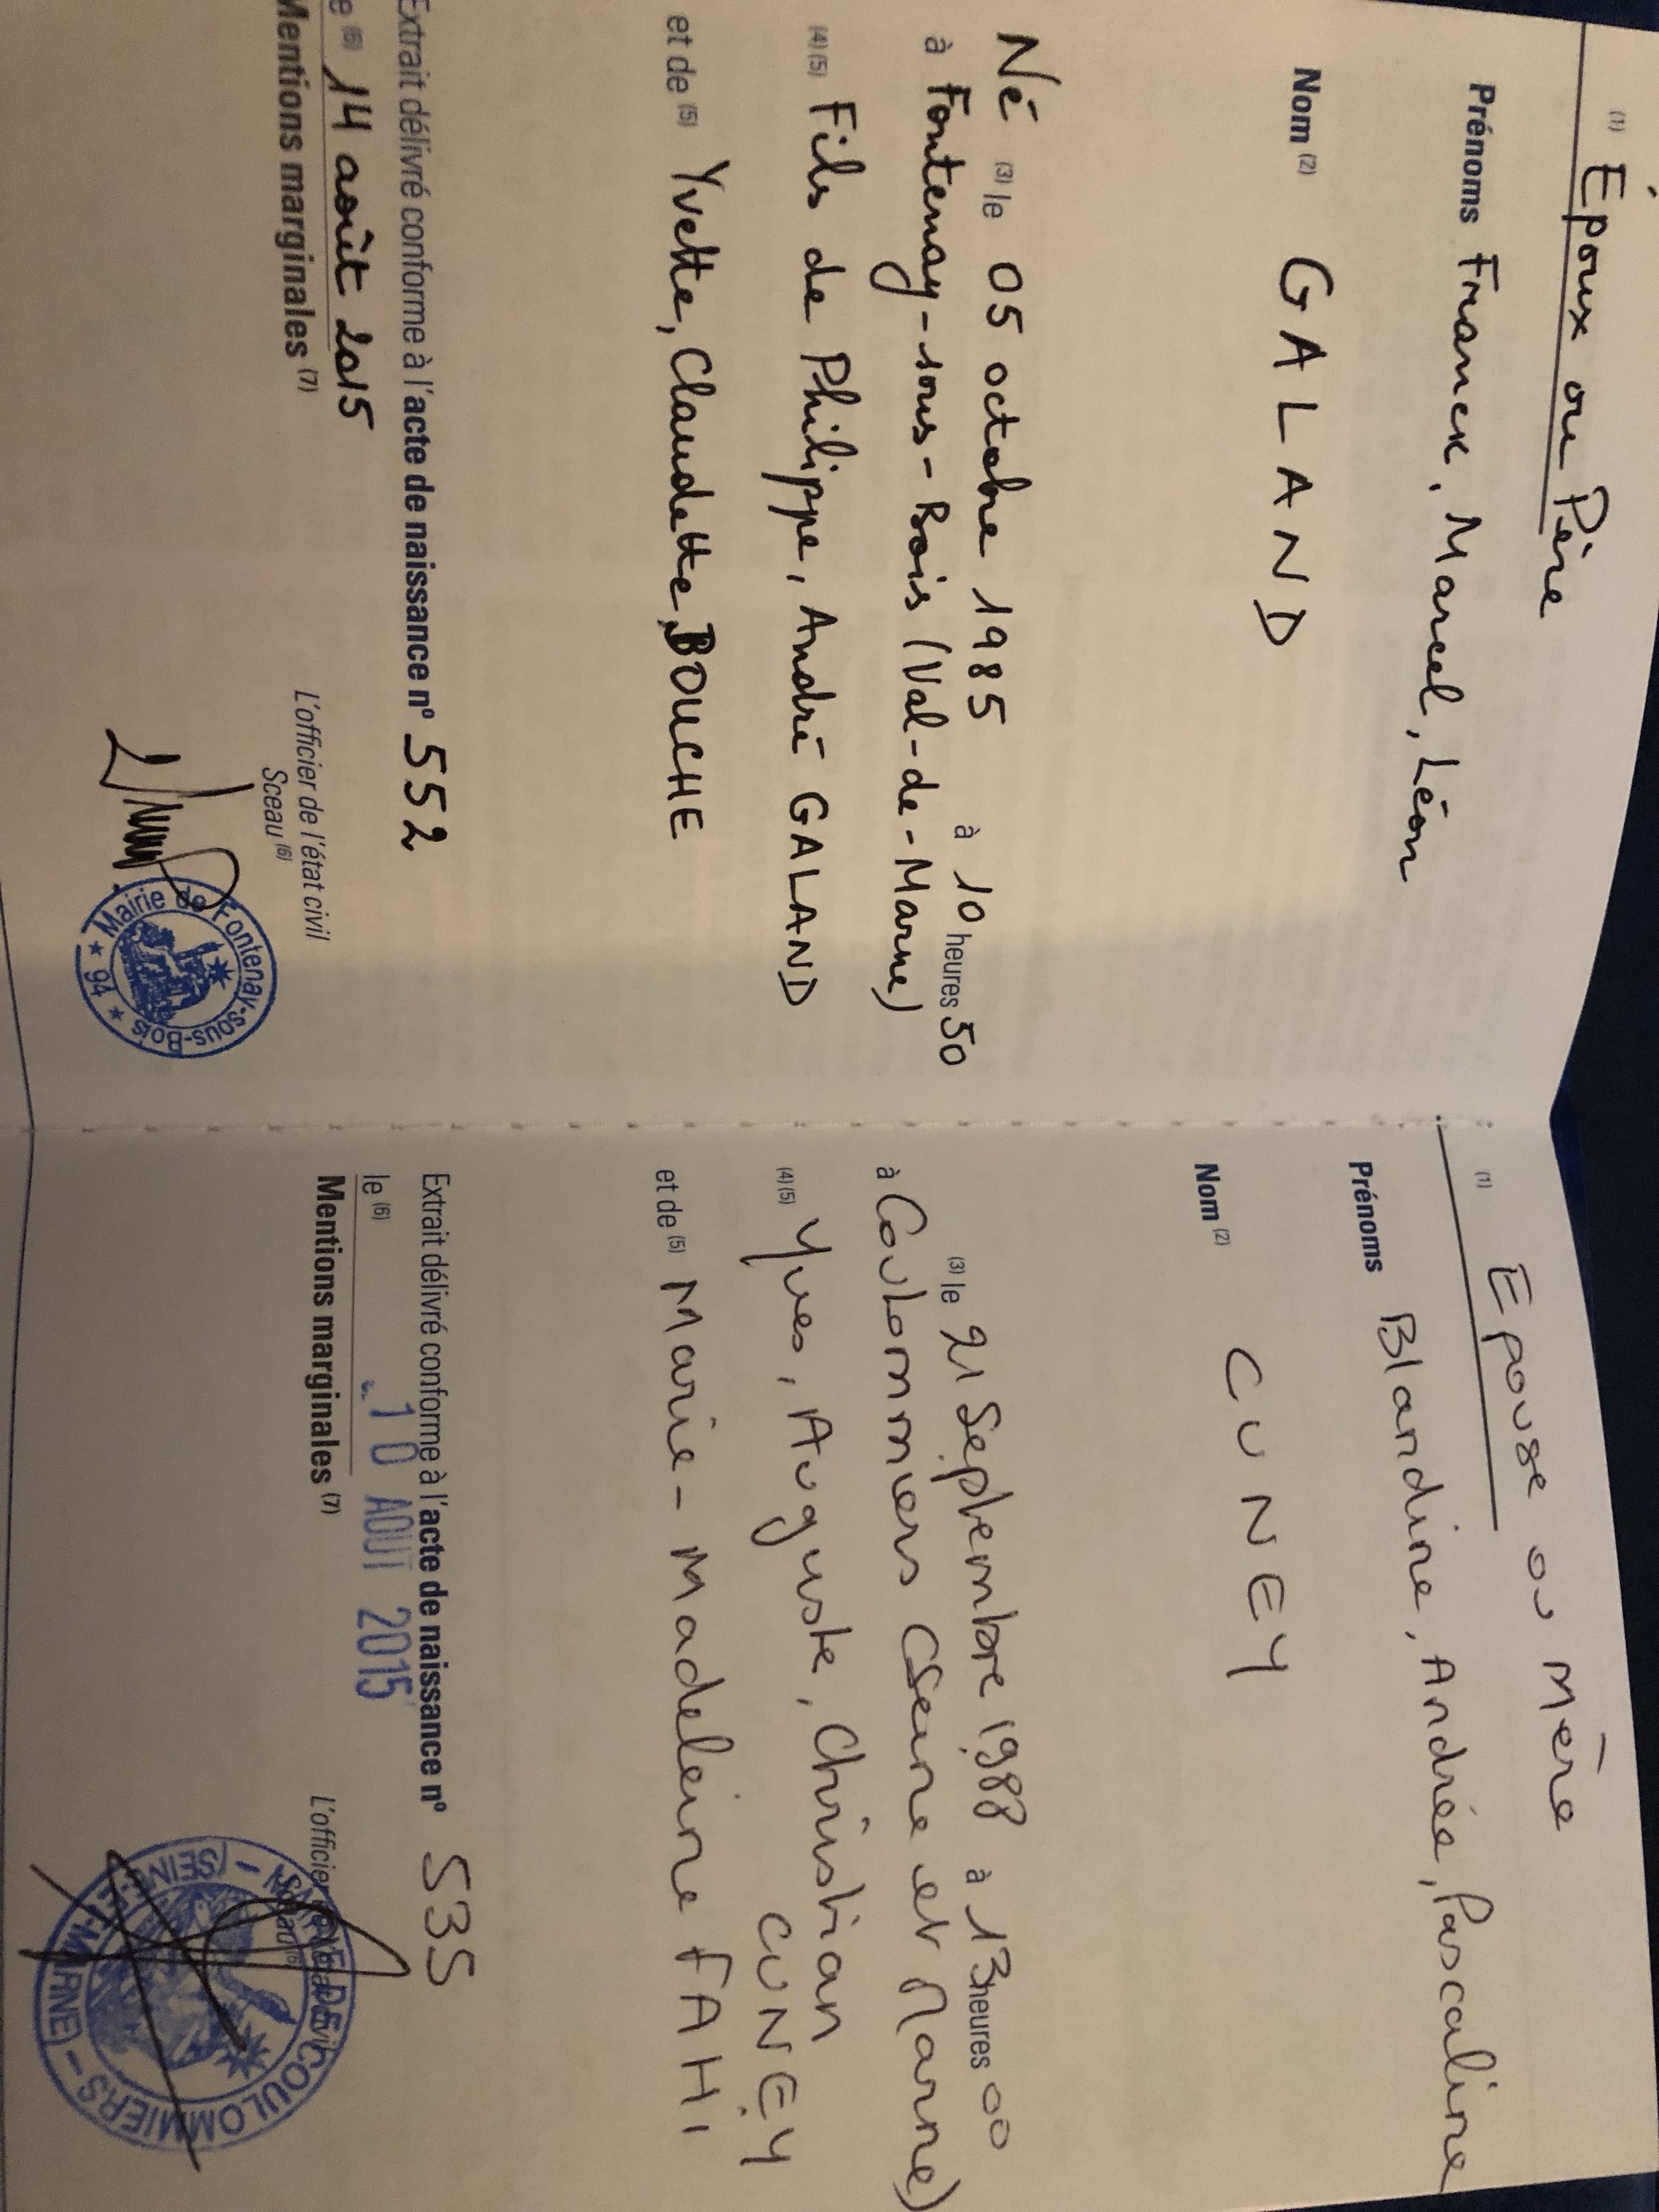 (1) Époux ou Père
Prénoms Franck, Marcel, Léon
Nom (2) GALAND
Né (3) le 05 octobre 1985 à 10 heures 50
à Fontenay-sous-Bois (Val-de-Marne)
(4) (5) Fils de Philippe, André GALAND
et de (5) Yvette, Claudette, BOUCHE
Extrait délivré conforme à l'acte de naissance n° 552
e (6) 14 août 2015
Mentions marginales (7)
L'officier de l'état civil
Sceau (6)
Mairie de Fontenay-sous-Bois
* 94 *
(1) Epouse ou Mère
Prénoms Blandine, Andrée, Pascaline
Nom (2) CUNEY
(3) le 21 Septembre 1988 à 13 heures 00
à Coulommiers (Seine et Marne)
(4) (5) Yves, Auguste, Christian
CUNEY
et de (5) Marie-Madeleine FAHI
Extrait délivré conforme à l'acte de naissance n° 535
le (6) 10 AOUT 2015
Mentions marginales (7)
L'officier
COULOMMIERS - (SEINE-ET-MARNE) -